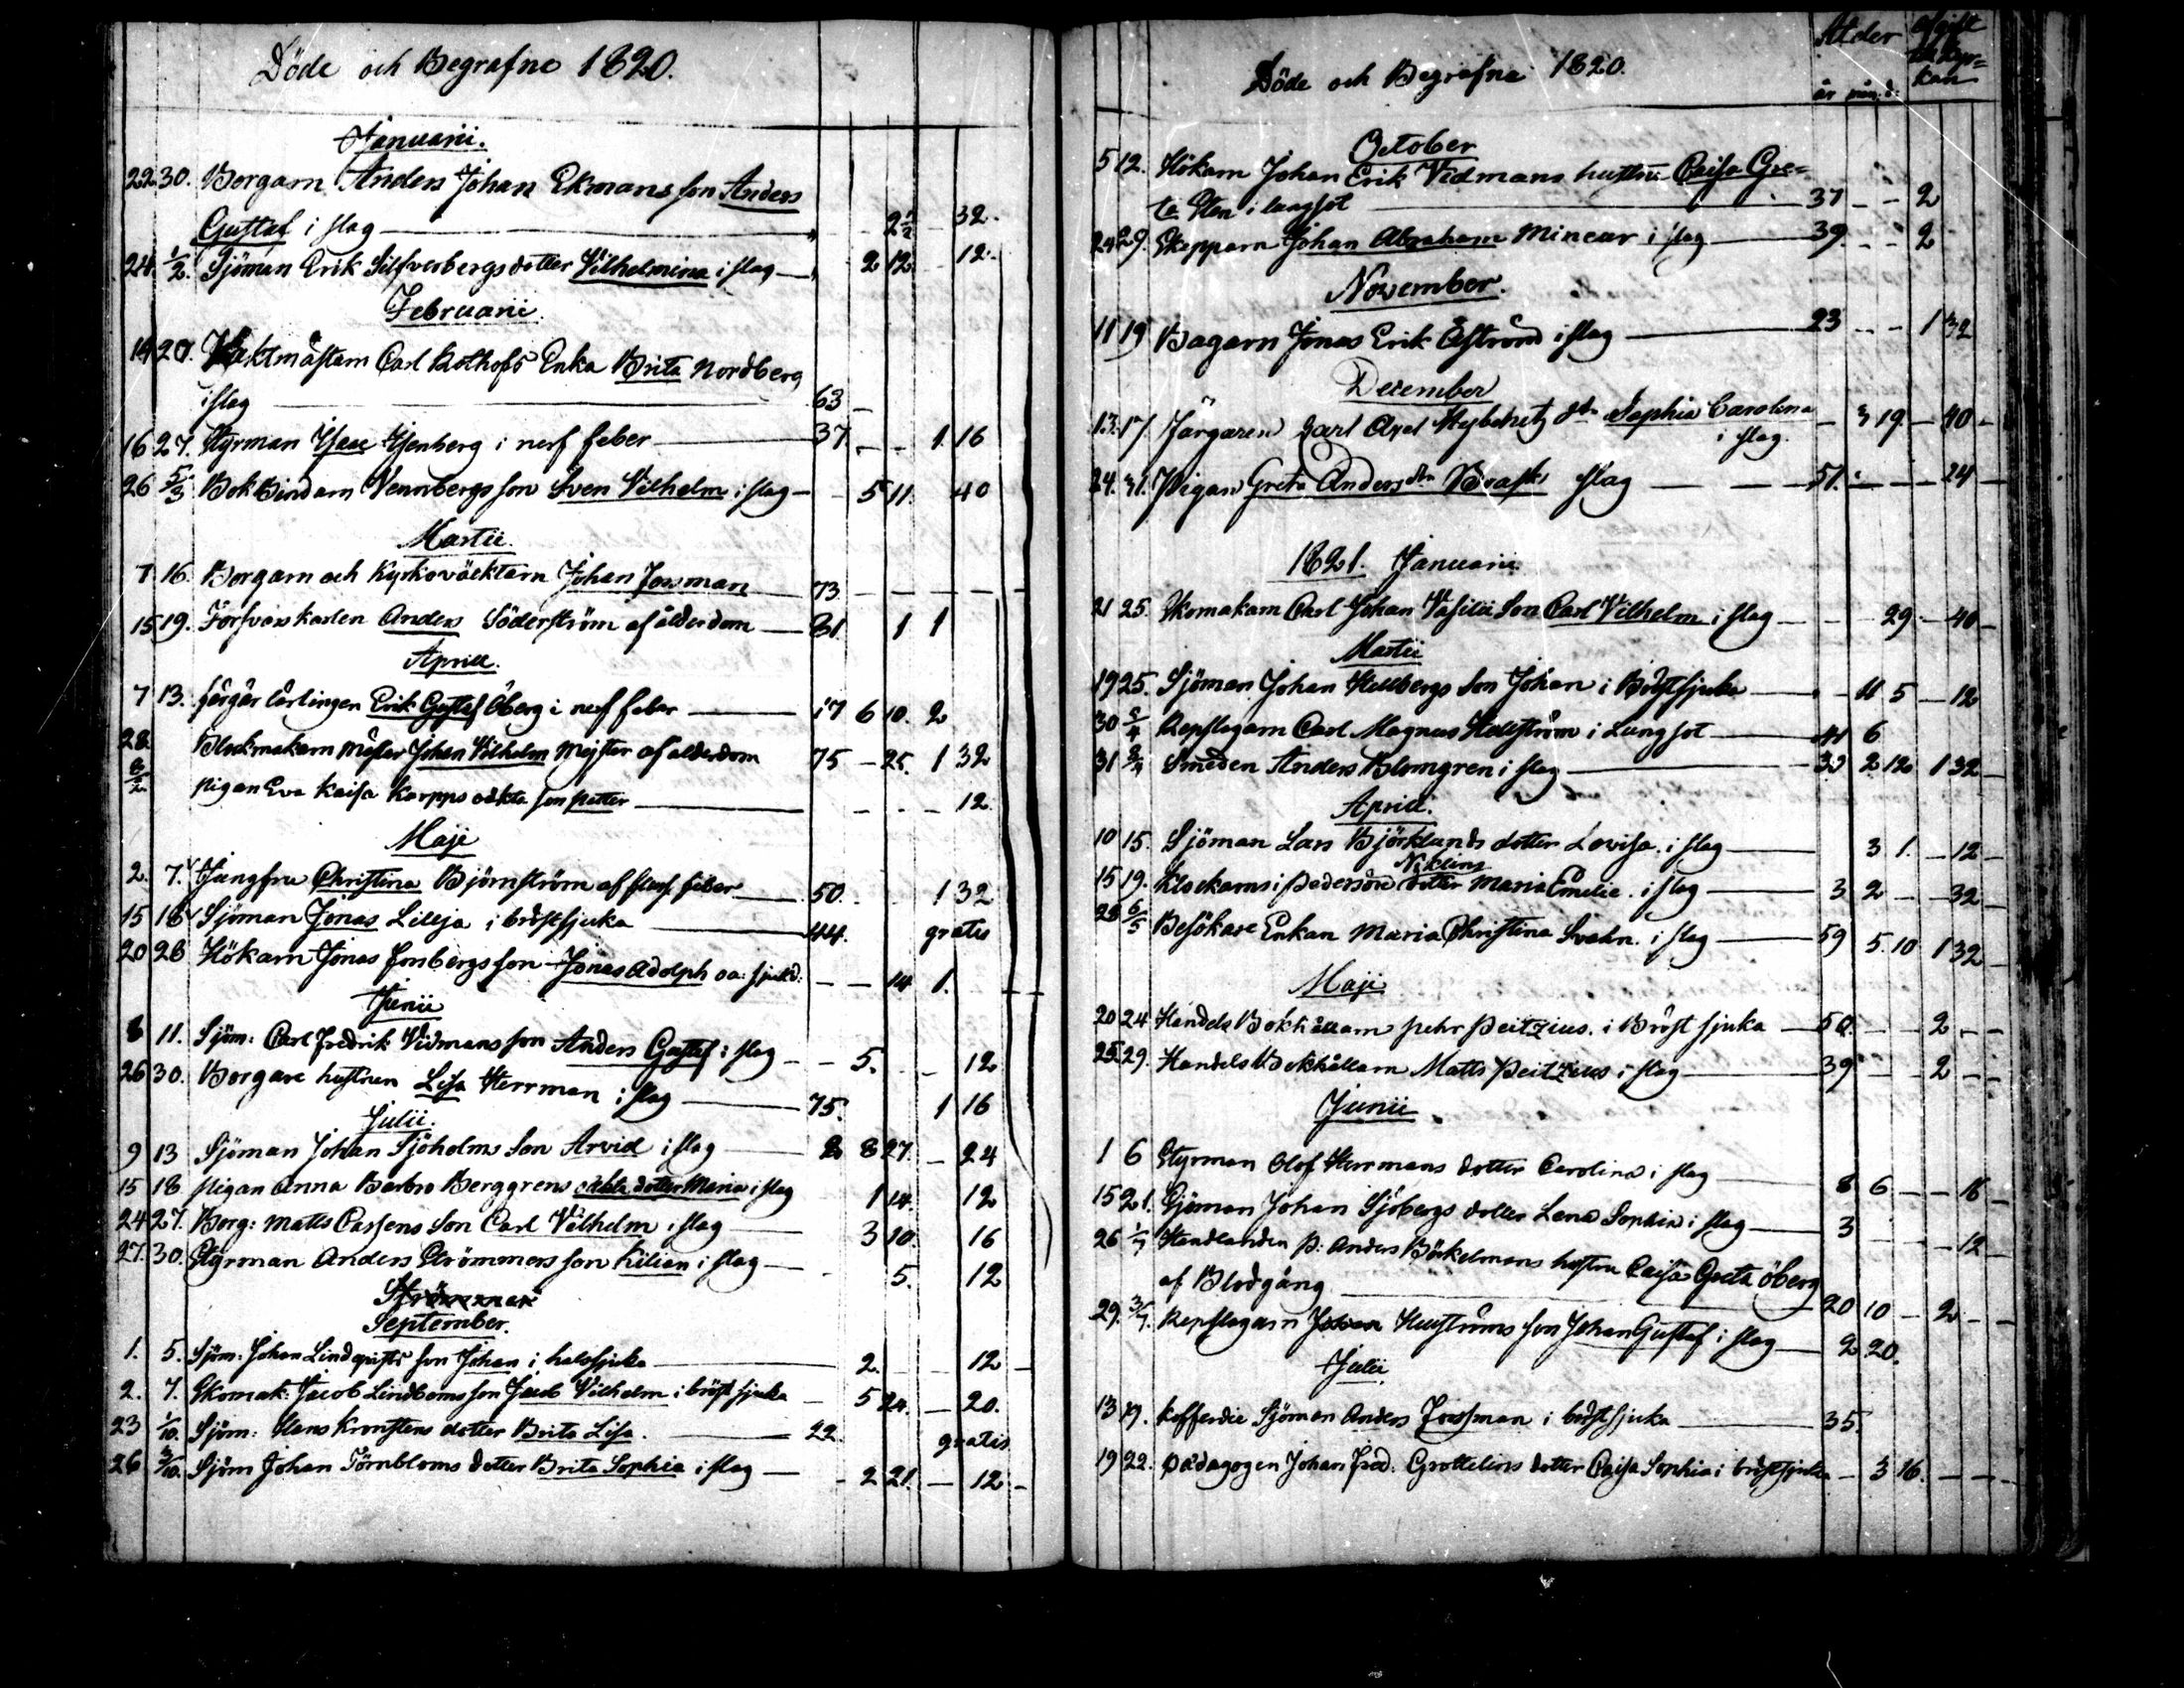 Döde och Begrafne 1820.
Januarii.
22 30. Borgarn Anders Johan Ekmans son Anders
Gustaf i slag 2 1/2 32.
24. 1/2. Sjöman Erik Silfverbergs dotter Vilhelmina i slag 2 12 12.
Februarii.
14 20. Vaktmästarn Carl Rolhofs Enka Brita Nordberg
i slag 63
16 27. Styrman Isac Isenberg i nerf feber 37. 1. 16
26 5/3 BokBindarn Vennbergs son Sven Vilhelm i slag 5 11. 40
Martii.
7 16. Borgarn och Kyrkoväcktarn Johan Jossman 73
15 19. Försvarskarlen Anders Söderström af ålderdom 81. 1 1
Aprill.
7 13. färgär lärlingen Erik Gustaf Öberg i nerf feber 17 6 10. 2
28 Blockmakarn Mäster Johan Vilhelm Mejster af ålderdom 75 25. 1 32
pigan Eva Kaisa Karpps oäkta son Petter 12.
Maji
2. 7. Jungfru Christina Björnström af feber 50. 1 32
15 18 Sjöman Jonas Lillja i bröstsjuka 44. gratis
20 28 Hökarn Jonas Jonbergs son Jonas Adolph oa: sjukd: 14 1.
Junii
8 11. Sjöm: Carl Fredrik Vidmans son Anders Gustaf i slag 5. 12
26 30. Borgare hustrun Lisa Herrman i slag 75. 1 16
Julii.
9 13 Sjöman Johan Sjöholms Son Arvid i slag 2 8 27. 24
15 18 pigan Anna Barbro Berggrens oäkta dotter Maria i slag 1 14. 12
24 27. Borg: Matts Cassens Son Carl Vilhelm i slag 3 10 16
27. 30. Styrman Anders Strömmers son Kilian i slag 5. 12
Strömmer
September.
1. 5. Sjöm: Johan Lindqvists son Johan i halssjuka 2. 12
2. 7. Skomak: Jacob Lindboms son Jacob Vilhelm i bröst sjuka 5 24. 20.
23 1/10. Sjöm: Hans Kronstens dotter Brita Lisa. 22. gratis
26 3/10. Sjöm Johan Törnbloms dotter Brita Sophia i slag 2 21. 12
Döde och Begrafne 1820.
Ålder afgift
till Kyr=
år mån. d: kan
October
5 12. Hökarn Johan Erik Vidmans hustru Caisa Gre=
ta Sten i lungsot 37 2
24 29. Skepparn Johan Abraham Mincur i slag 39 2
November.
11 19 Bagarn Jonas Erik Åstrand i slag 23 1 32
December
13. 17. Färgaren Carl Axel dtr Sophia Carolina 3 19. 40
i slag.
24. 31. Pigan Greta Anders dtr Brask slag 51. 24
1821. Januarii.
21 25. Skomakarn Carl Johan Vasilii Son Carl Vilhelm i slag 29 40
Martii
19 25. Sjöman Johan Hellbergs Son Johan i Bröstsjuka 11 5 12
30 8/4 Repslagarn Carl Magnus Hellström i Lungsot 41 6
31 8/4 Smeden Anders Blomgren i slag 33 2 12 1 32
Aprill.
10 15. Sjöman Lars Björklunds dotter Lovisa. i slag 3 1. 12
Niklins
15 19. Klockarns i Pedersöre dotter Maria Emelie. i slag 3 2 32
28 6/5 Besökare Enkan Maria Christina Svahn. i slag 59 5. 10 1 32
Maji
20 24 Handels Bokhållarn Pehr Peitzius. i Bröst sjuka 50. 2
25 29. Handels Bokhållarn Matts Peitzius i slag 39 2
Junii
1 6 Styrman Olof Herrmans dotter Carolina i slag 8 6 16
15 21. Sjöman Johan Sjöbergs dotter Lena Sophia i slag 3 12
26 1/7 Handlanden P: Anders Böckelmans hustru Caisa Greta Öberg
af Blodgång 20 10 2
29. 3/7. Repslagarn Johan Hellströms son Johan Gustaf i slag 2 20.
Julii
13 19. Kofferdie Sjöman Anders Jossman i bröstsjuka 35.
19 22. Pädagogen Johan Fred: Grottelins dotter Caisa Sophia i bröstsjuka 3 16.